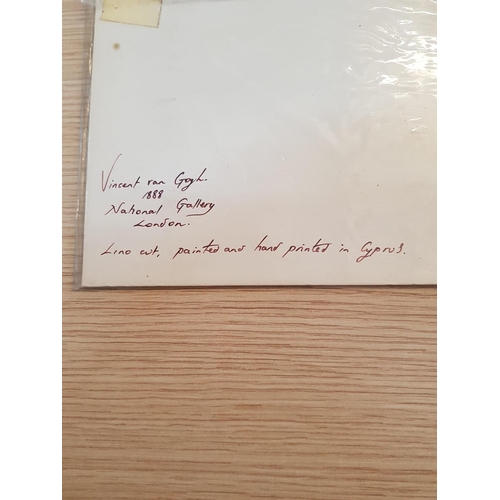 Vincent van Gogh.
1888
National Gallery
London.
Lino cut, painted and hand printed in Cyprus.